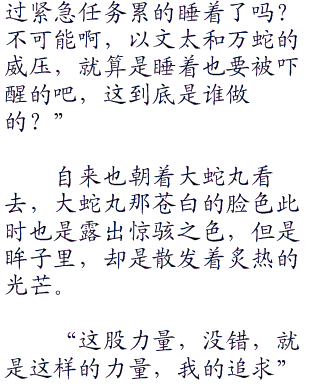 过紧急任务累的睡着了吗?
不可能啊，以文太和万蛇的
威压，就算是睡着也要被吓
醒的吧，这到底是谁做
的?”
自来也朝着大蛇丸看
去，大蛇丸那苍白的脸色此
时也是露出惊骇之色，但是
眸子里，却是散发着炙热的
光芒。
“这股力量，没错，就
是这样的力量，我的追求”